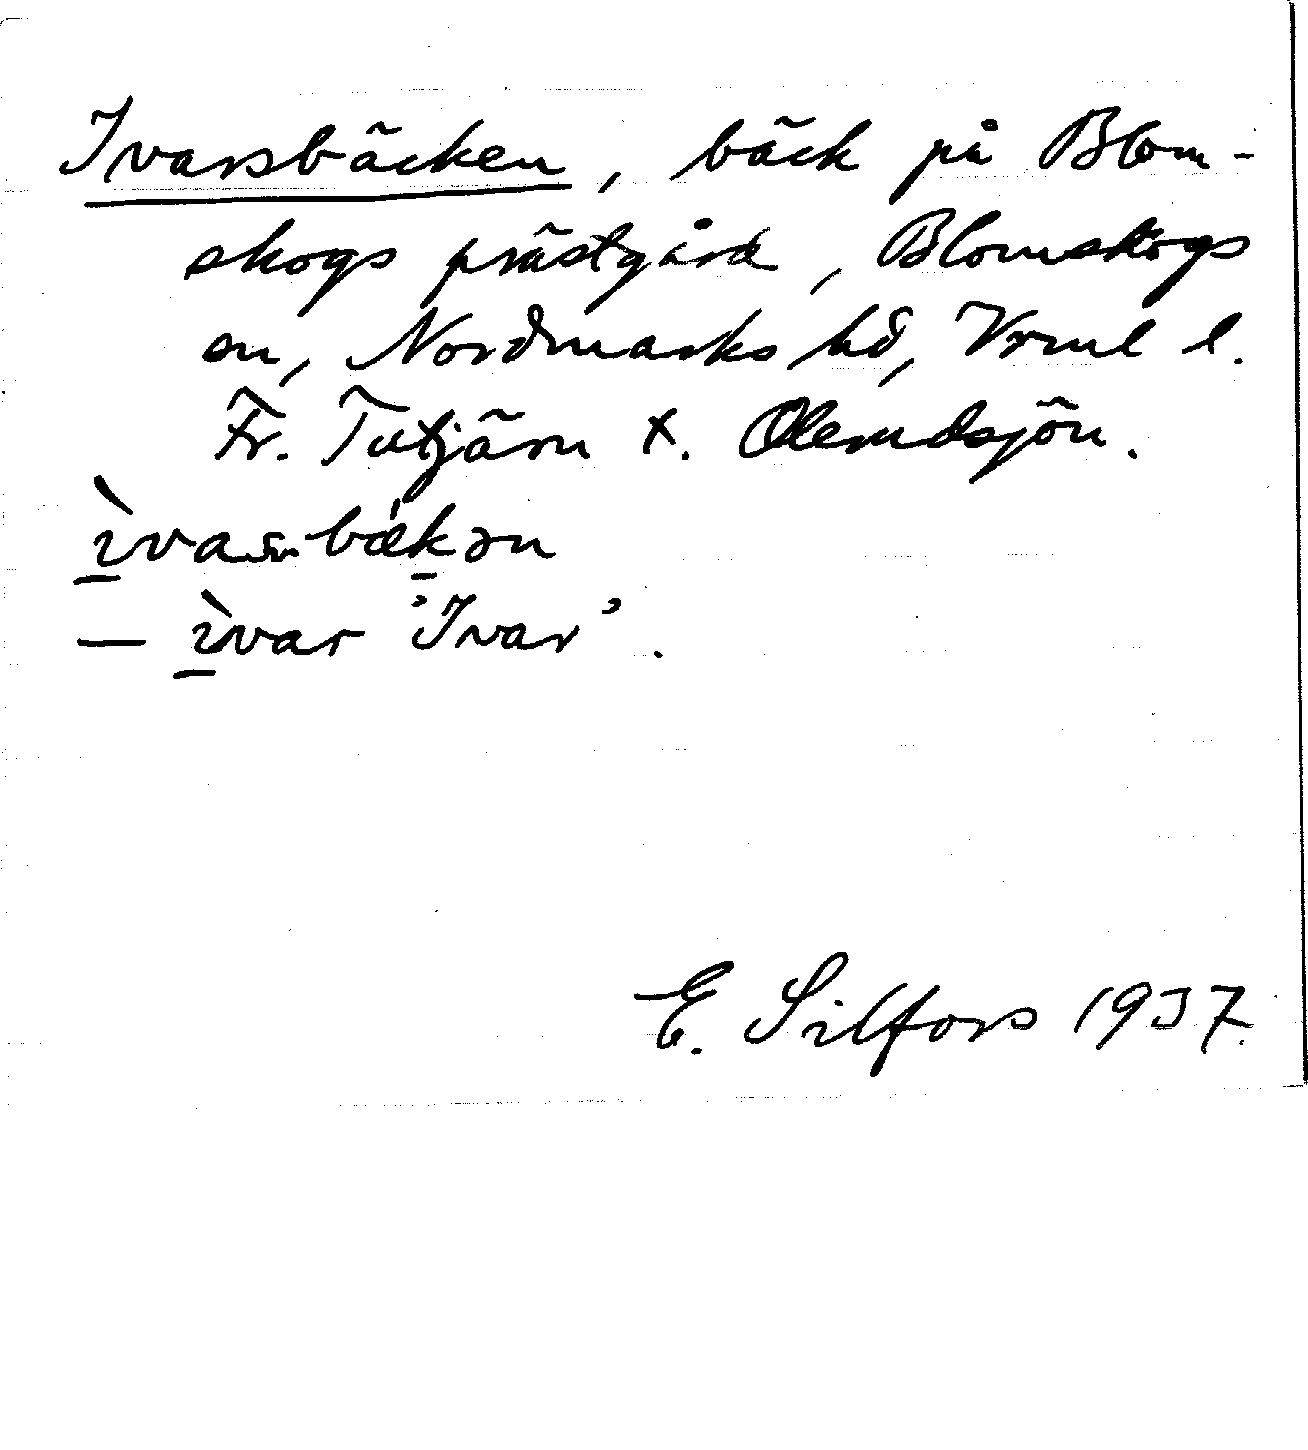 Ivarsbäcken, bäck på Blom-
skogs prästgård, Blomskogs
sn, Nordmarks hd, Vrml l.
Fr. Tutjärn t. Olerudsjön.
ìvaʂbǽkən
— ìvar 'Ivar'.
E. Silfors 1937.